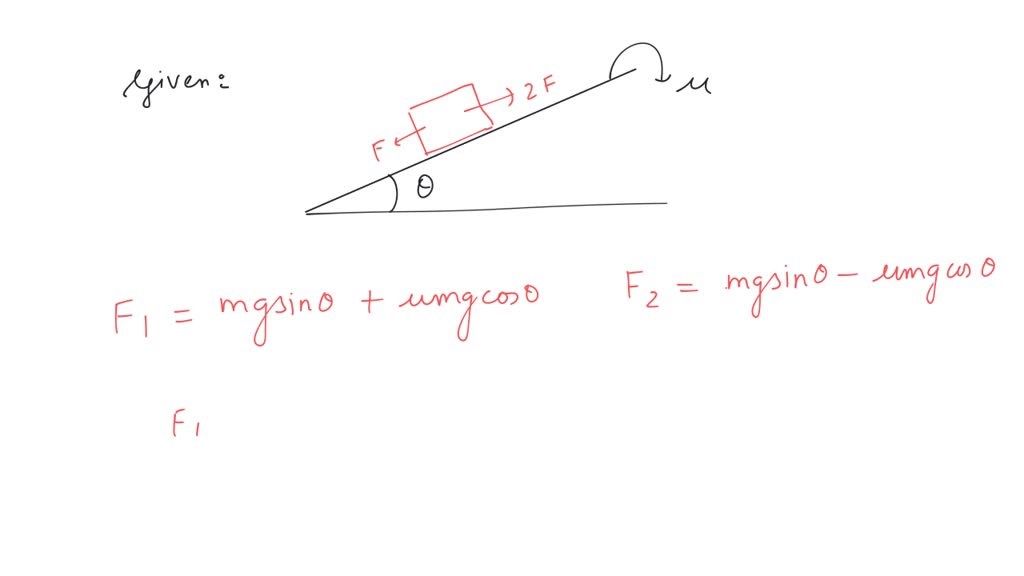 Given:
2F
μ
F
θ
F₁ = mgsinθ + μmgcosθ
F₂ = mgsinθ - μmgcosθ
F₁